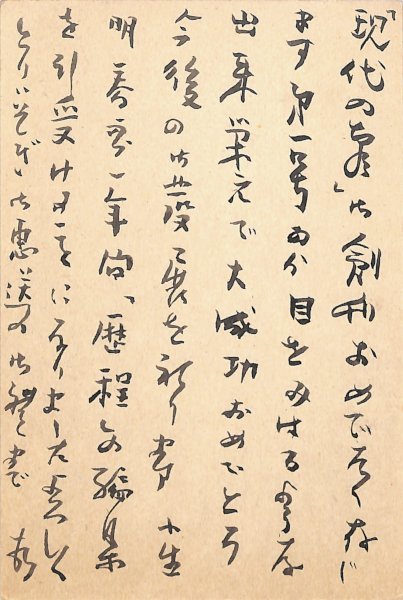 「現代の書」御創刊おめでたく存じ
ます第一号から目をみはるような
出来栄えで大成功おめでとう
今後の御発展を祈ります 小生
明春 一年間、「歴程」の編集
を引受けることになりましたよろしく
とりいそぎ御恵送の御礼まで